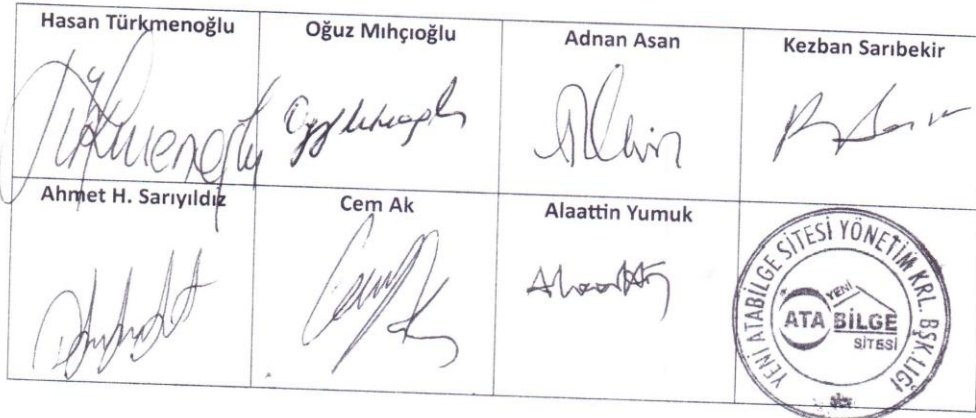 Hasan Türkmenoğlu
Oğuz Mıhçıoğlu
Adnan Asan
Kezban Sarıbekir
Türkmenoğlu
Ahmet H. Sarıyıldız
Cem Ak
Alaattin Yumuk
YENİ ATABİLGE SİTESİ YÖNETİM KRL. BŞK.LIĞI
YENİ
ATA BİLGE
SİTESİ